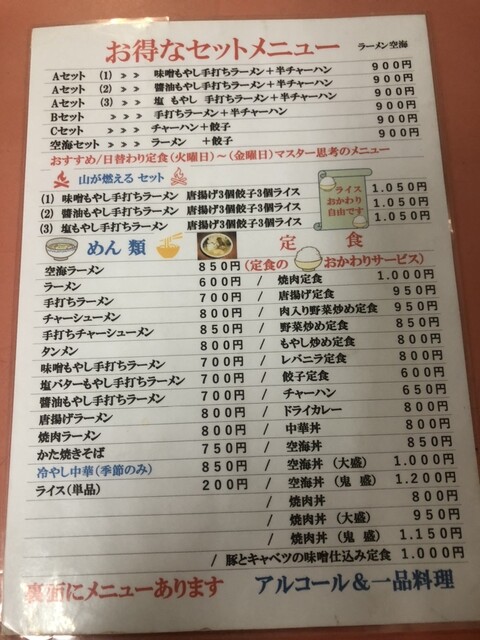 お得なセットメニュー ラーメン空海
Aセット (1) >> 味噌もやし手打ちラーメン+半チャーハン 900円
Aセット (2) >> 醤油もやし手打ちラーメン+半チャーハン 900円
Aセット (3) >> 塩 もやし 手打ちラーメン+半チャーハン 900円
Bセット >>> 手打ちラーメン+半チャーハン 900円
Cセット >>> チャーハン+餃子 900円
空海セット >>> ラーメン +餃子 900円
おすすめ/日替わり定食(火曜日)~(金曜日)マスター思考のメニュー
山が燃える セット
ライス
おかわり
自由です
(1) 味噌もやし手打ちラーメン 唐揚げ3個餃子3個ライス 1.050円
(2) 醤油もやし手打ちラーメン 唐揚げ3個餃子3個ライス 1.050円
(3) 塩もやし手打ちラーメン 唐揚げ3個餃子3個ライス 1.050円
めん 類 定 食
空海ラーメン 850円 (定食の おかわりサービス)
ラーメン 600円 / 焼肉定食 1.000円
手打ちラーメン 700円 / 唐揚げ定食 950円
チャーシューメン 800円 / 肉入り野菜炒め定食 950円
手打ちチャーシューメン 850円 / 野菜炒め定食 850円
タンメン 800円 / もやし炒め定食 800円
味噌もやし手打ちラーメン 700円 / レバニラ定食 800円
塩バターもやし手打ちラーメン 700円 / 餃子定食 600円
醤油もやし手打ちラーメン 700円 / チャーハン 650円
唐揚げラーメン 800円 / ドライカレー 800円
焼肉ラーメン 800円 / 中華丼 800円
かた焼きそば 750円 / 空海丼 850円
冷やし中華(季節のみ) 850円 / 空海丼 (大盛) 1.000円
ライス(単品) 200円 / 空海丼 (鬼 盛) 1.200円
/ 焼肉丼 800円
/ 焼肉丼 (大盛) 950円
/ 焼肉丼 (鬼 盛) 1.150円
/ 豚とキャベツの味噌仕込み定食 1.000円
裏面にメニューあります アルコール&一品料理